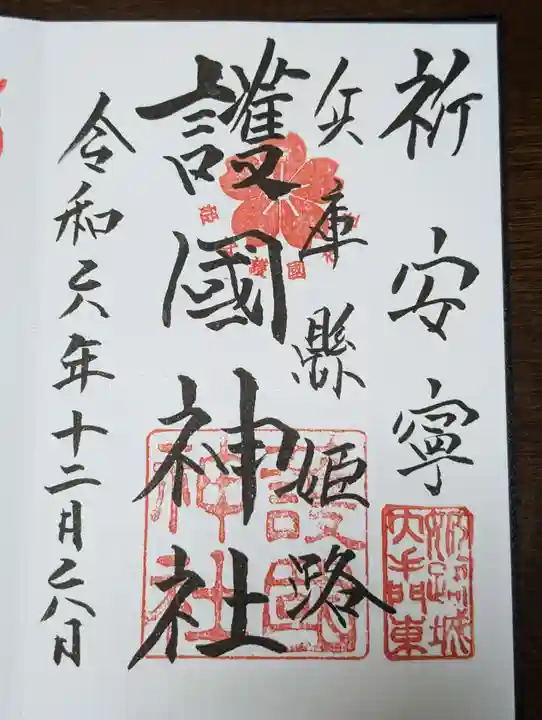 祈安寧
兵庫縣姫路
護國神社
令和六年十二月六日
護國
神社
姫路城
大手門東